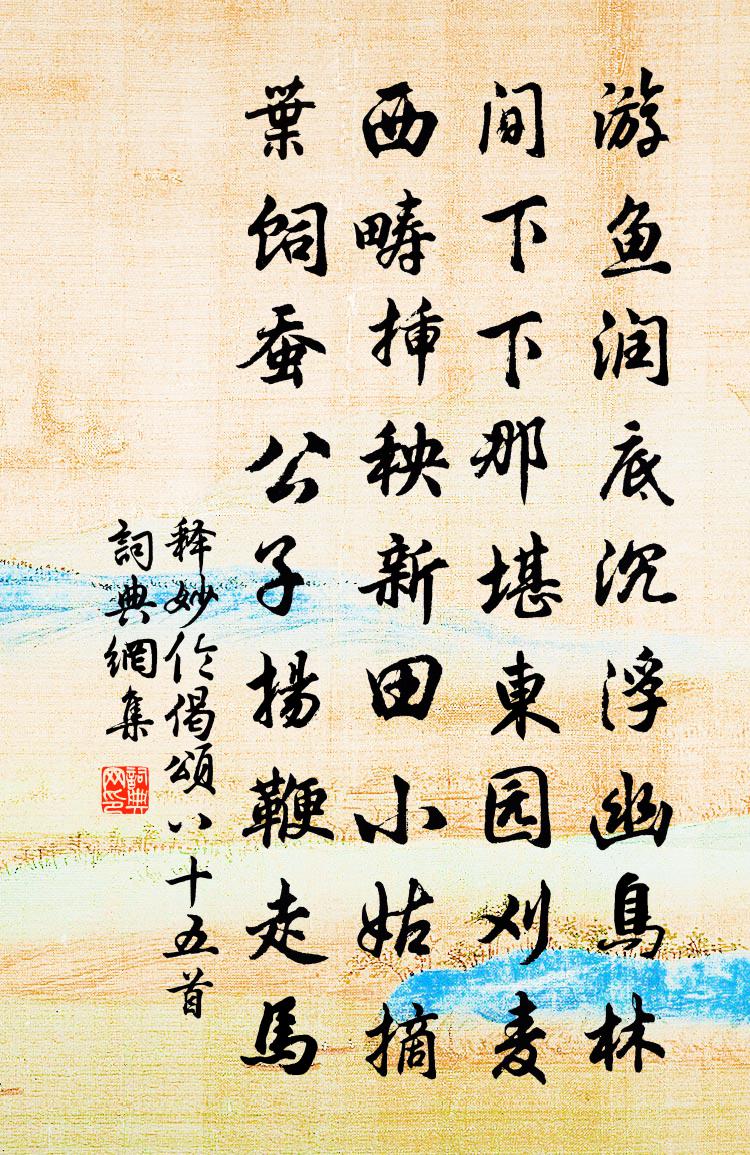 游鱼润底沉浮幽鳥林
间下下那堪東园刈麦
西畴挿秧新田小姑摘
葉饲蚕公子揚鞭走馬
释妙伦偈頌八十五首
詞典網集
詞典网印